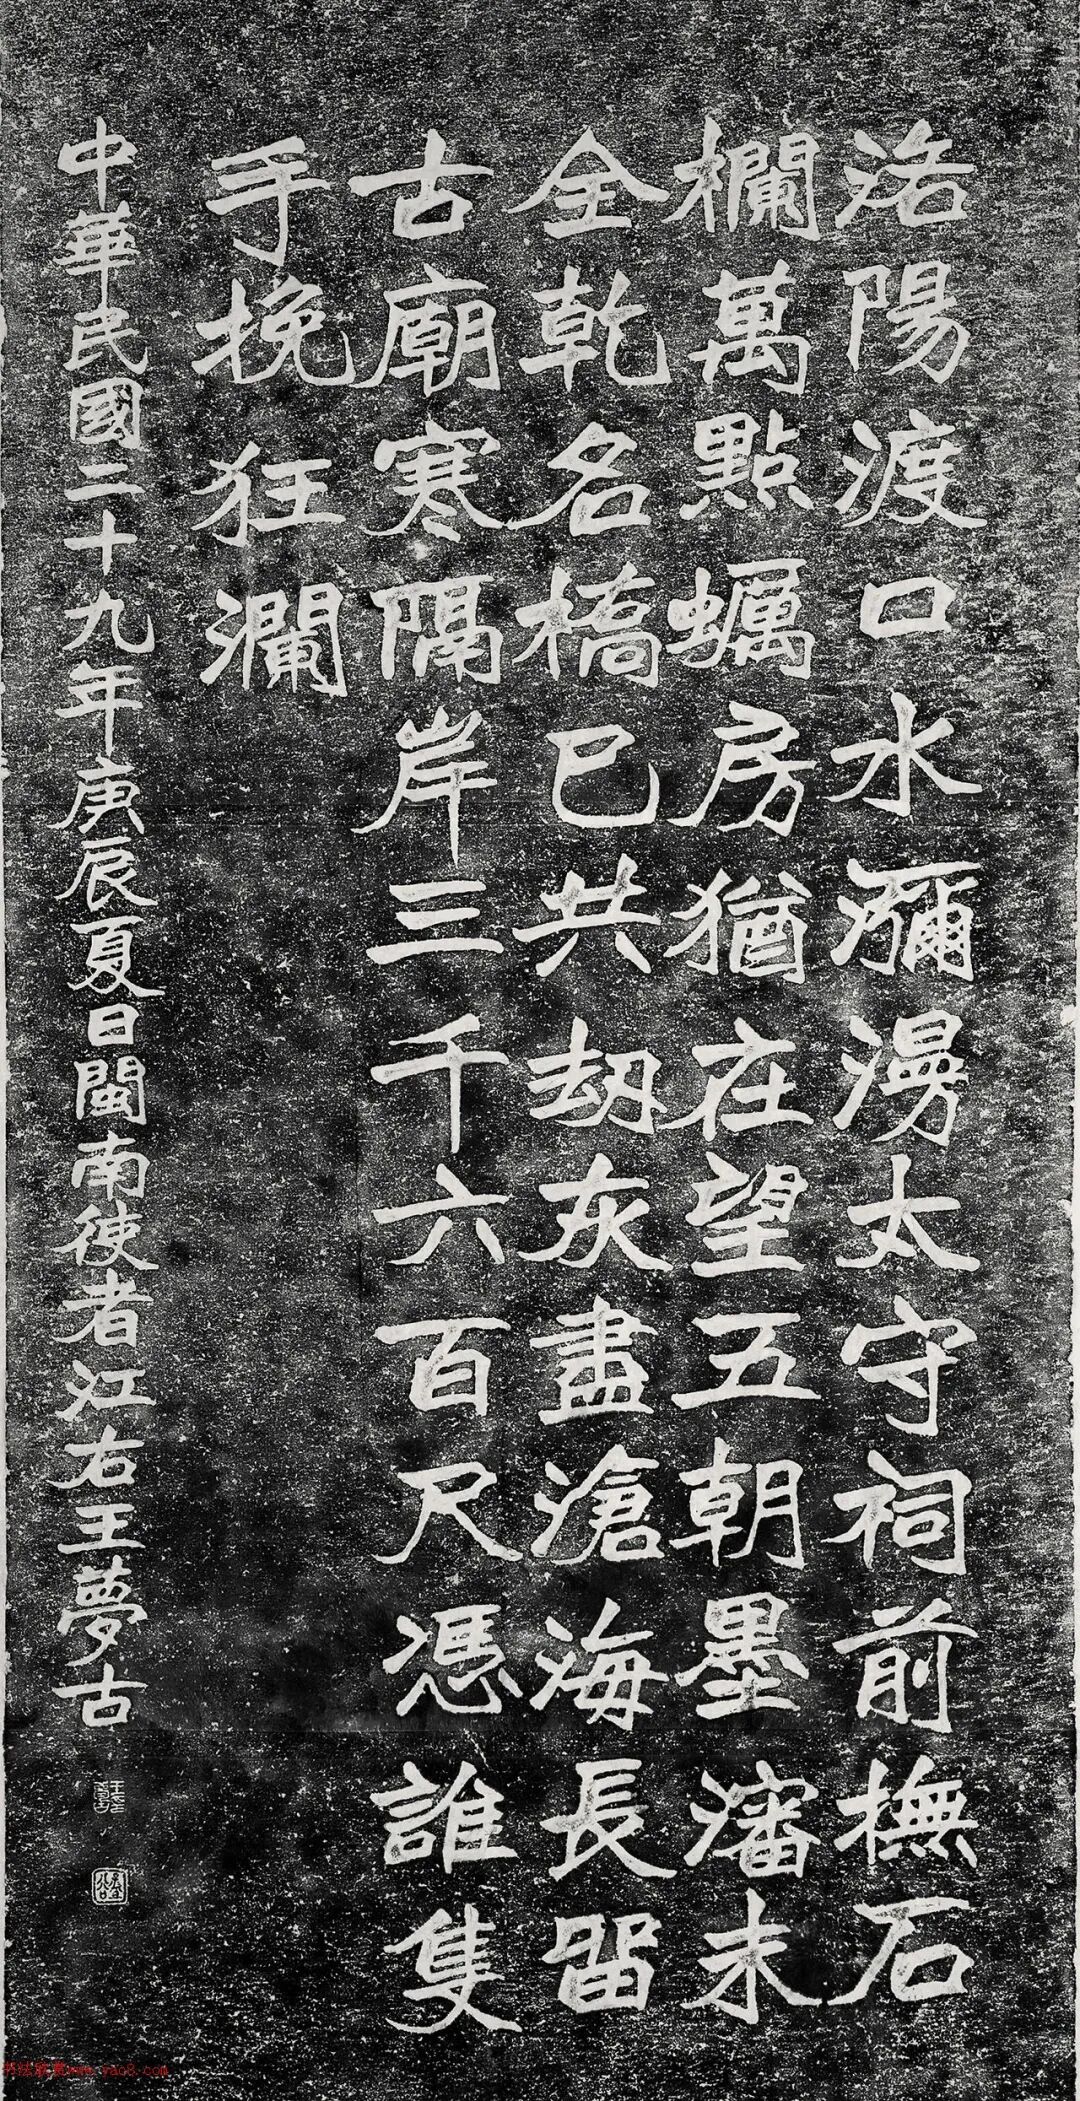 洛陽渡口水瀰漫太守祠前撫石
欄萬點蠣房猶在望五朝墨瀋未
全乾名橋已共劫灰盡滄海長留
古廟寒隔岸三千六百尺憑誰隻
手挽狂瀾
中華民國二十九年庚辰夏日閩南使者江右王夢古
www.yac8.com